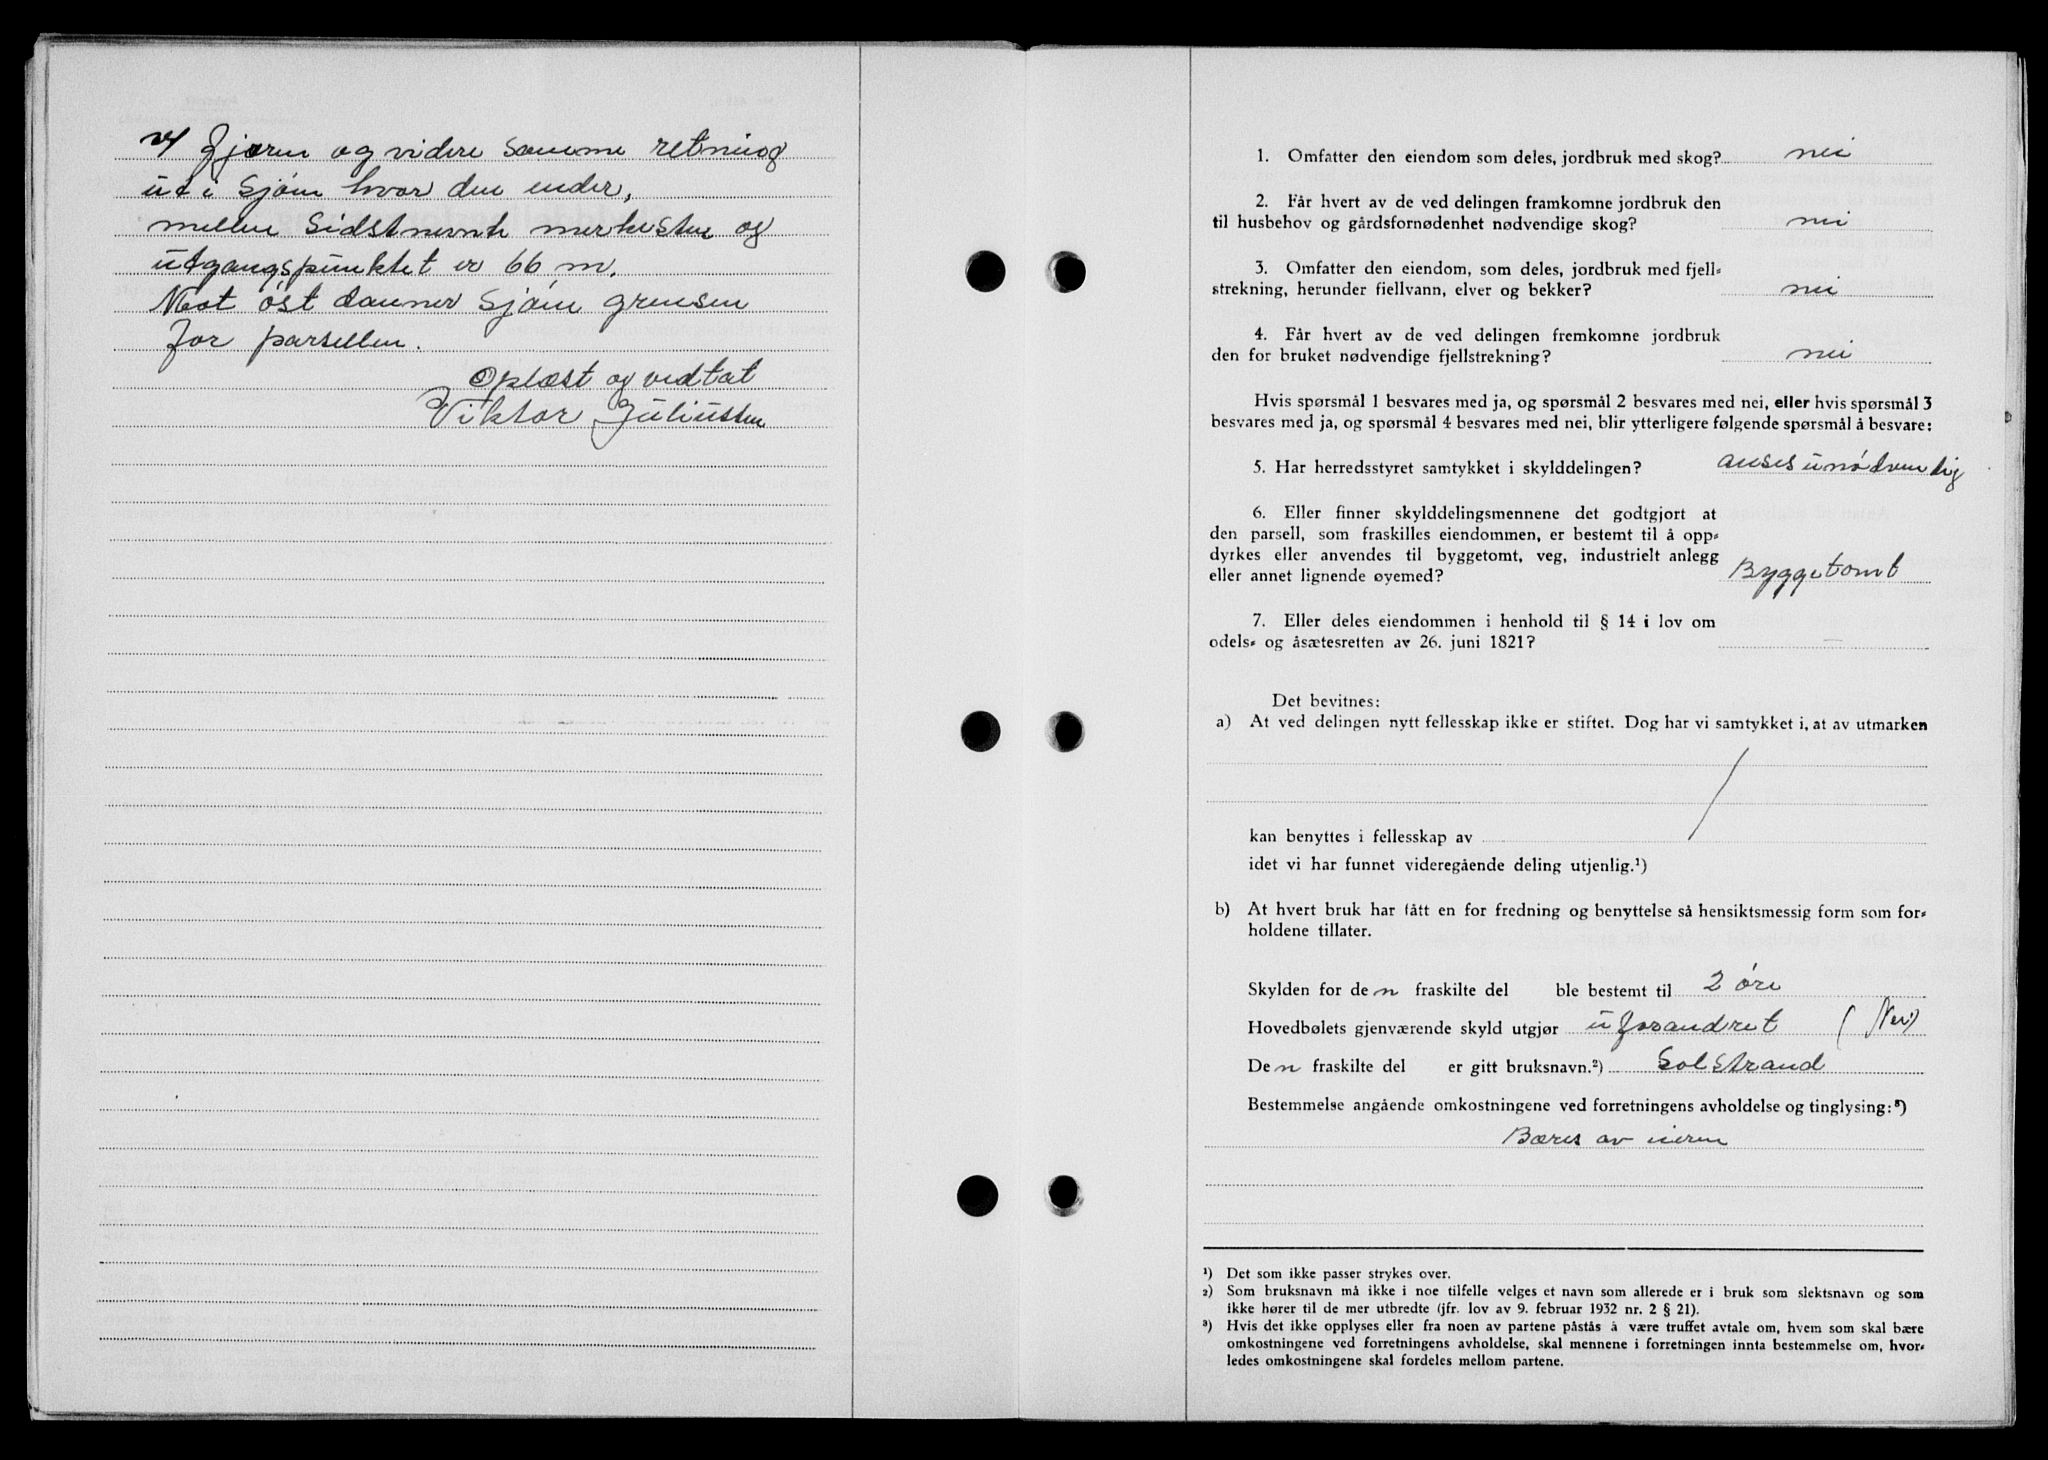 v/ fjæren og videre samme retning
ut i Sjøen hvor den ender,
mellem Sidstnevnte merkesten og
utgangspunktet er 66 m.
Mot øst danner Sjøen grensen
for parsellen.
Oplæst og vedtat
Viktor Juliussen
1. Omfatter den eiendom som deles, jordbruk med skog? nei
2. Får hvert av de ved delingen framkomne jordbruk den
til husbehov og gårdsfornødenhet nødvendige skog? nei
3. Omfatter den eiendom, som deles, jordbruk med fjell-
strekning, herunder fiellvann, elver og bekker? nei
4. Får hvert av de ved delingen fremkomne jordbruk
den for bruket nødvendige fjellstrekning? nei
Hvis spørsmål 1 besvares med ja, og spørsmål 2 besvares med nei, eller hvis spørsmål 3
besvares med ja, og spørsmål 4 besvares med nei, blir ytterligere følgende spørsmål å besvare:
5. Har herredsstyret samtykket i skylddelingen? anses unødvendig
6. Eller finner skylddelingsmennene det godtgjort at
den parsell, som fraskilles eiendommen, er bestemt til å opp-
dyrkes eller anvendes til byggetomt, veg, industrielt anlegg
eller annet lignende øyemed? Byggetomt
7. Eller deles eiendommen i henhold til § 14 i lov om
odels- og åsætesretten av 26. juni 1821? —
Det bevitnes:
a) At ved delingen nytt fellesskap ikke er stiftet. Dog har vi samtykket i, at av utmarken
kan benyttes i fellesskap av
idet vi har funnet videregående deling utjenlig.¹)
b) At hvert bruk har fått en for fredning og benyttelse så hensiktsmessig form som for-
holdene tillater.
Skylden for den fraskilte del ble bestemt til 2 øre
Hovedbølets gjenværende skyld utgjør uforandret (Nei)
Den fraskilte del er gitt bruksnavn.²) Solstrand
Bestemmelse angående omkostningene ved forretningens avholdelse og tinglysing:³)
Bæres av eieren
¹) Det som ikke passer strykes over.
²) Som bruksnavn må ikke i noe tilfelle velges et navn som allerede er i bruk som slektsnavn og som
ikke hører til de mer utbredte (jfr. lov av 9. februar 1932 nr. 2 § 21).
³) Hvis det ikke opplyses eller fra noen av partene påstås å være truffet avtale om, hvem som skal bære
omkostningene ved forretningens avholdelse, skal mennene i forretningen innta bestemmelse om, hvor-
ledes omkostningene skal fordeles mellom partene.